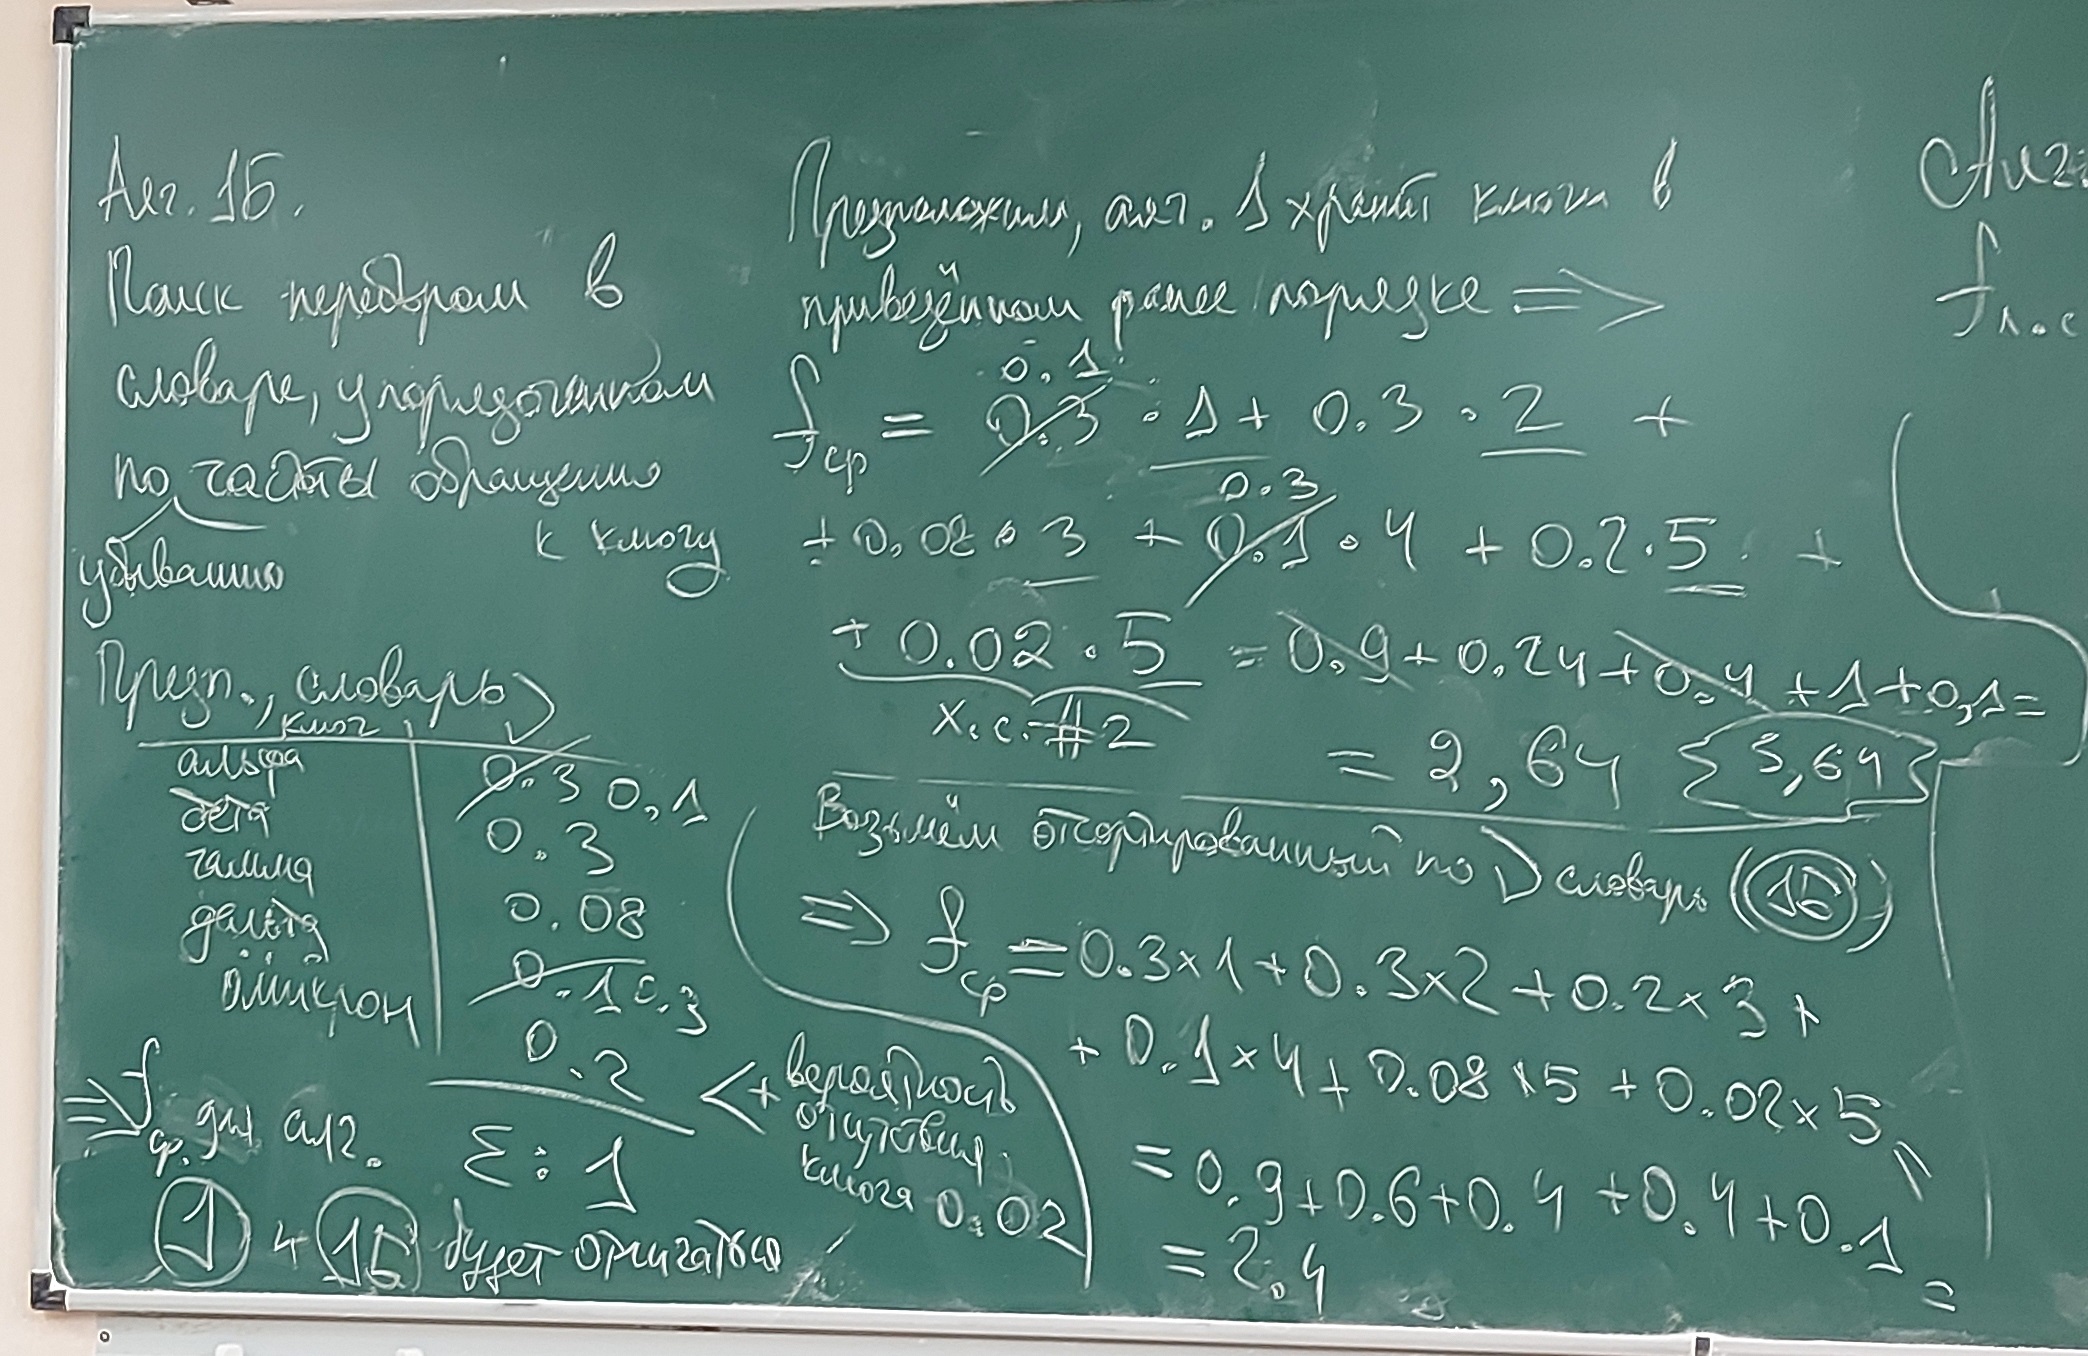 Алг. 1Б.
Поиск перебором в
словаре, упорядоченном
по частоты обращения
убыванию
к ключу
Предп., словарь
ключ
альфа 0.3 0,1
бета 0.3
гамма 0.08
дельта 0.1 0.3
омикрон 0.2
Σ: 1
< + вероятность
отсутствия
ключа 0.02
=> f ср. для алг.
1 и 1Б будет отличаться
Предположим, алг. 1 хранит ключи в
приведённом ранее порядке =>
0.1
fср = 0.3 · 1 + 0.3 · 2 +
0.3
+ 0.08 · 3 + 0.1 · 4 + 0.2 · 5 +
+ 0.02 · 5 = 0.9 + 0.24 + 0.4 + 1 + 0,1 =
х.с. #2
= 2,64 {3,64}
Возьмём отсортированный по словарь (1Б)
=> fср = 0.3 × 1 + 0.3 × 2 + 0.2 × 3 +
+ 0.1 × 4 + 0.08 × 5 + 0.02 × 5 =
= 0.9 + 0.6 + 0.4 + 0.4 + 0.1 =
= 2.4
Алг.
fл.с